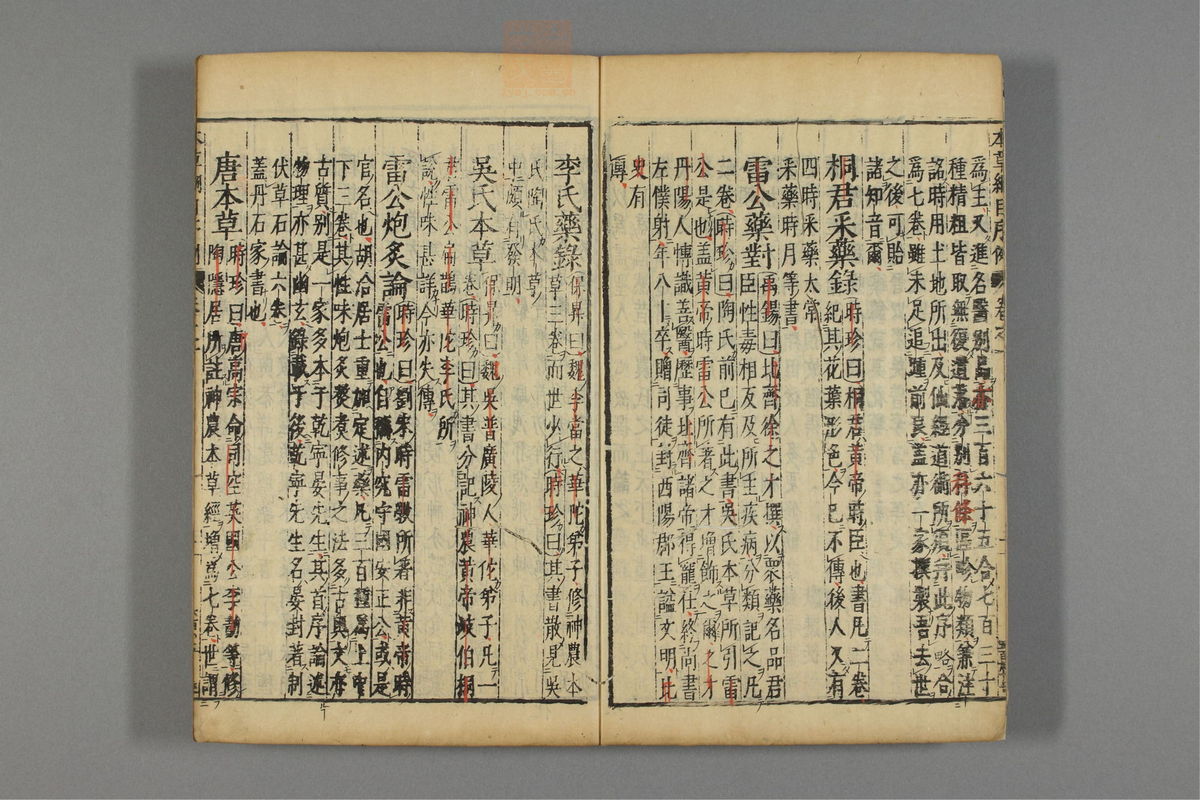 爲主又進名醫別品亦三百六十五合七百三十
種精粗皆取無復遺落分別科條區畛物類兼注
詺時用土地所出及仙經道術所須幷此序略合
爲七卷雖未足追踵前良蓋亦一家撰製吾去世
之後可貽
諸知音爾
桐君采藥錄時珍曰桐君黃帝時臣也書凡二卷
紀其花葉形色今已不傳後人又有
四時采藥太常
采藥時月等書
雷公藥對禹錫曰北齊徐之才撰以衆藥名品君
臣性毒相反及所主疾病分類記之凡
二卷時珍曰陶氏前已有此書吳氏本草所引雷
公是也蓋黃帝時雷公所著之才增飾之爾之才
丹陽人博識善醫歷事北齊諸帝得寵仕終尚書
左僕射年八十卒贈司徒封西陽郡王謚文明北
史有
傳
李氏藥錄保昇曰魏李當之華佗弟子修神農本
草三卷而世少行時珍曰其書散見吳
氏陶氏本草
中頗有發明
吳氏本草保昇曰魏吳普廣陵人華佗弟子凡一
卷時珍曰其書分記神農黃帝岐伯桐
君雷公扁鵲華佗李氏所
說性味甚詳今亦失傳
雷公炮炙論時珍曰劉宋時雷斅所著非黃帝時
雷公也自稱內究守國安正公或是
官名也胡洽居士重加定述藥凡三百種爲上中
下三卷其性味炮炙熬煮修事之法多古奧文亦
古質別是一家多本于乾寧晏先生其首序論述
物理亦甚幽玄錄載于後乾寧先生名晏封著制
伏草石論六卷
蓋丹石家書也
唐本草時珍曰唐高宗命司空英國公李勣等修
陶隱居所註神農本草經增爲七卷世謂